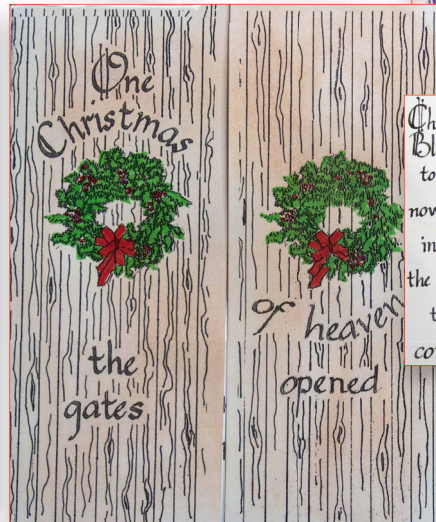 One
Christmas
the
gates
of heaven
opened
to
now
in
the